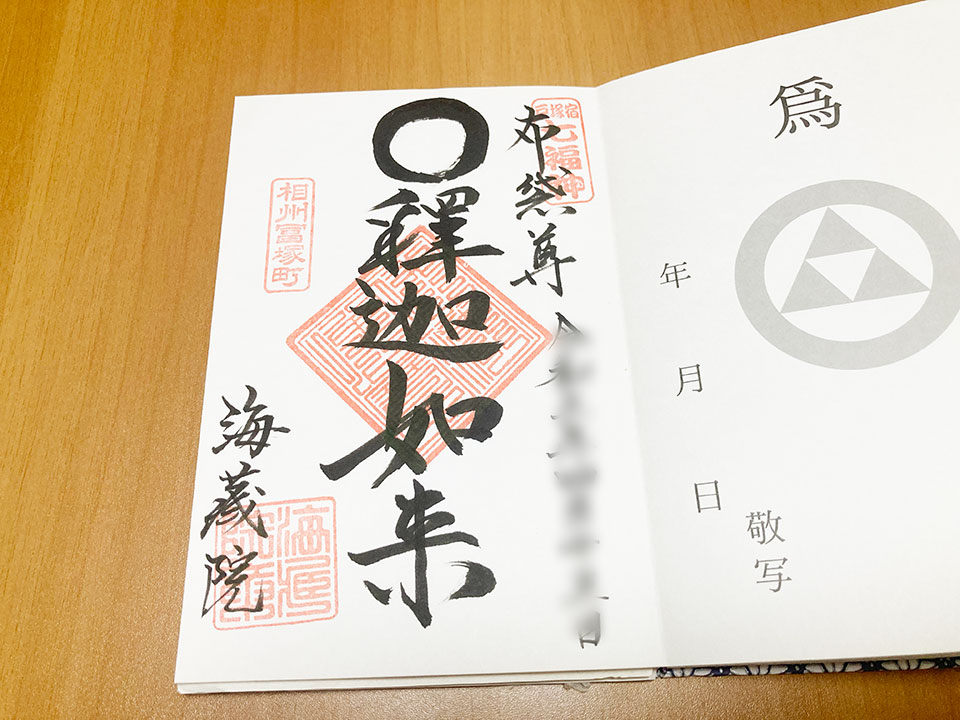 爲
年 月 日
敬写
戸塚宿
七福神
布袋尊
釋迦如来
相州富塚町
海蔵院